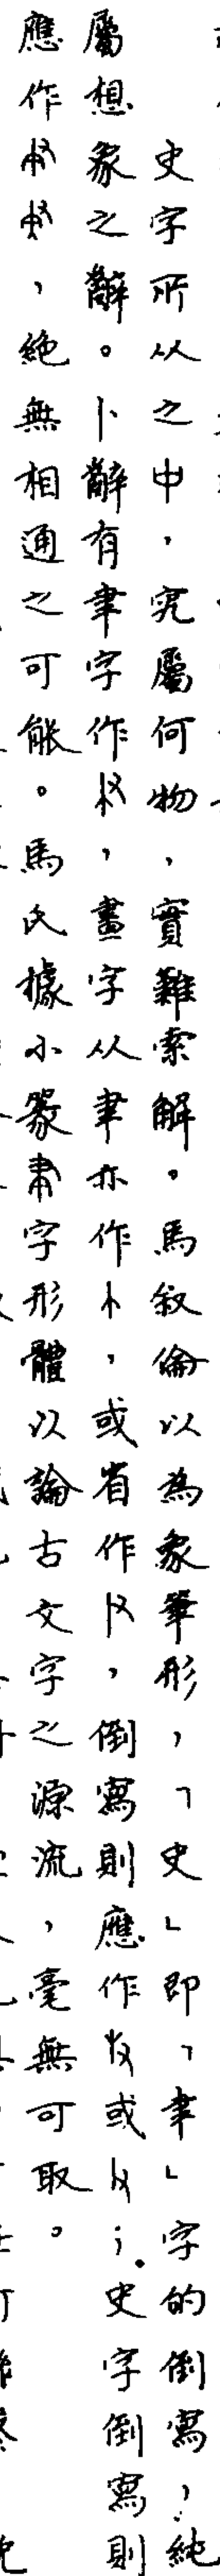 史字所从之中，究屬何物，實難索解。馬叙倫以為象筆形，「史」即「聿」字的倒寫，純
屬想象之辭。卜辭有聿字作，畫字从聿亦作，或省作，倒寫則應作或；史字倒寫則
應作，絶無相通之可能。馬氏據小篆肃字形體以論古文字之源流，毫無可取。